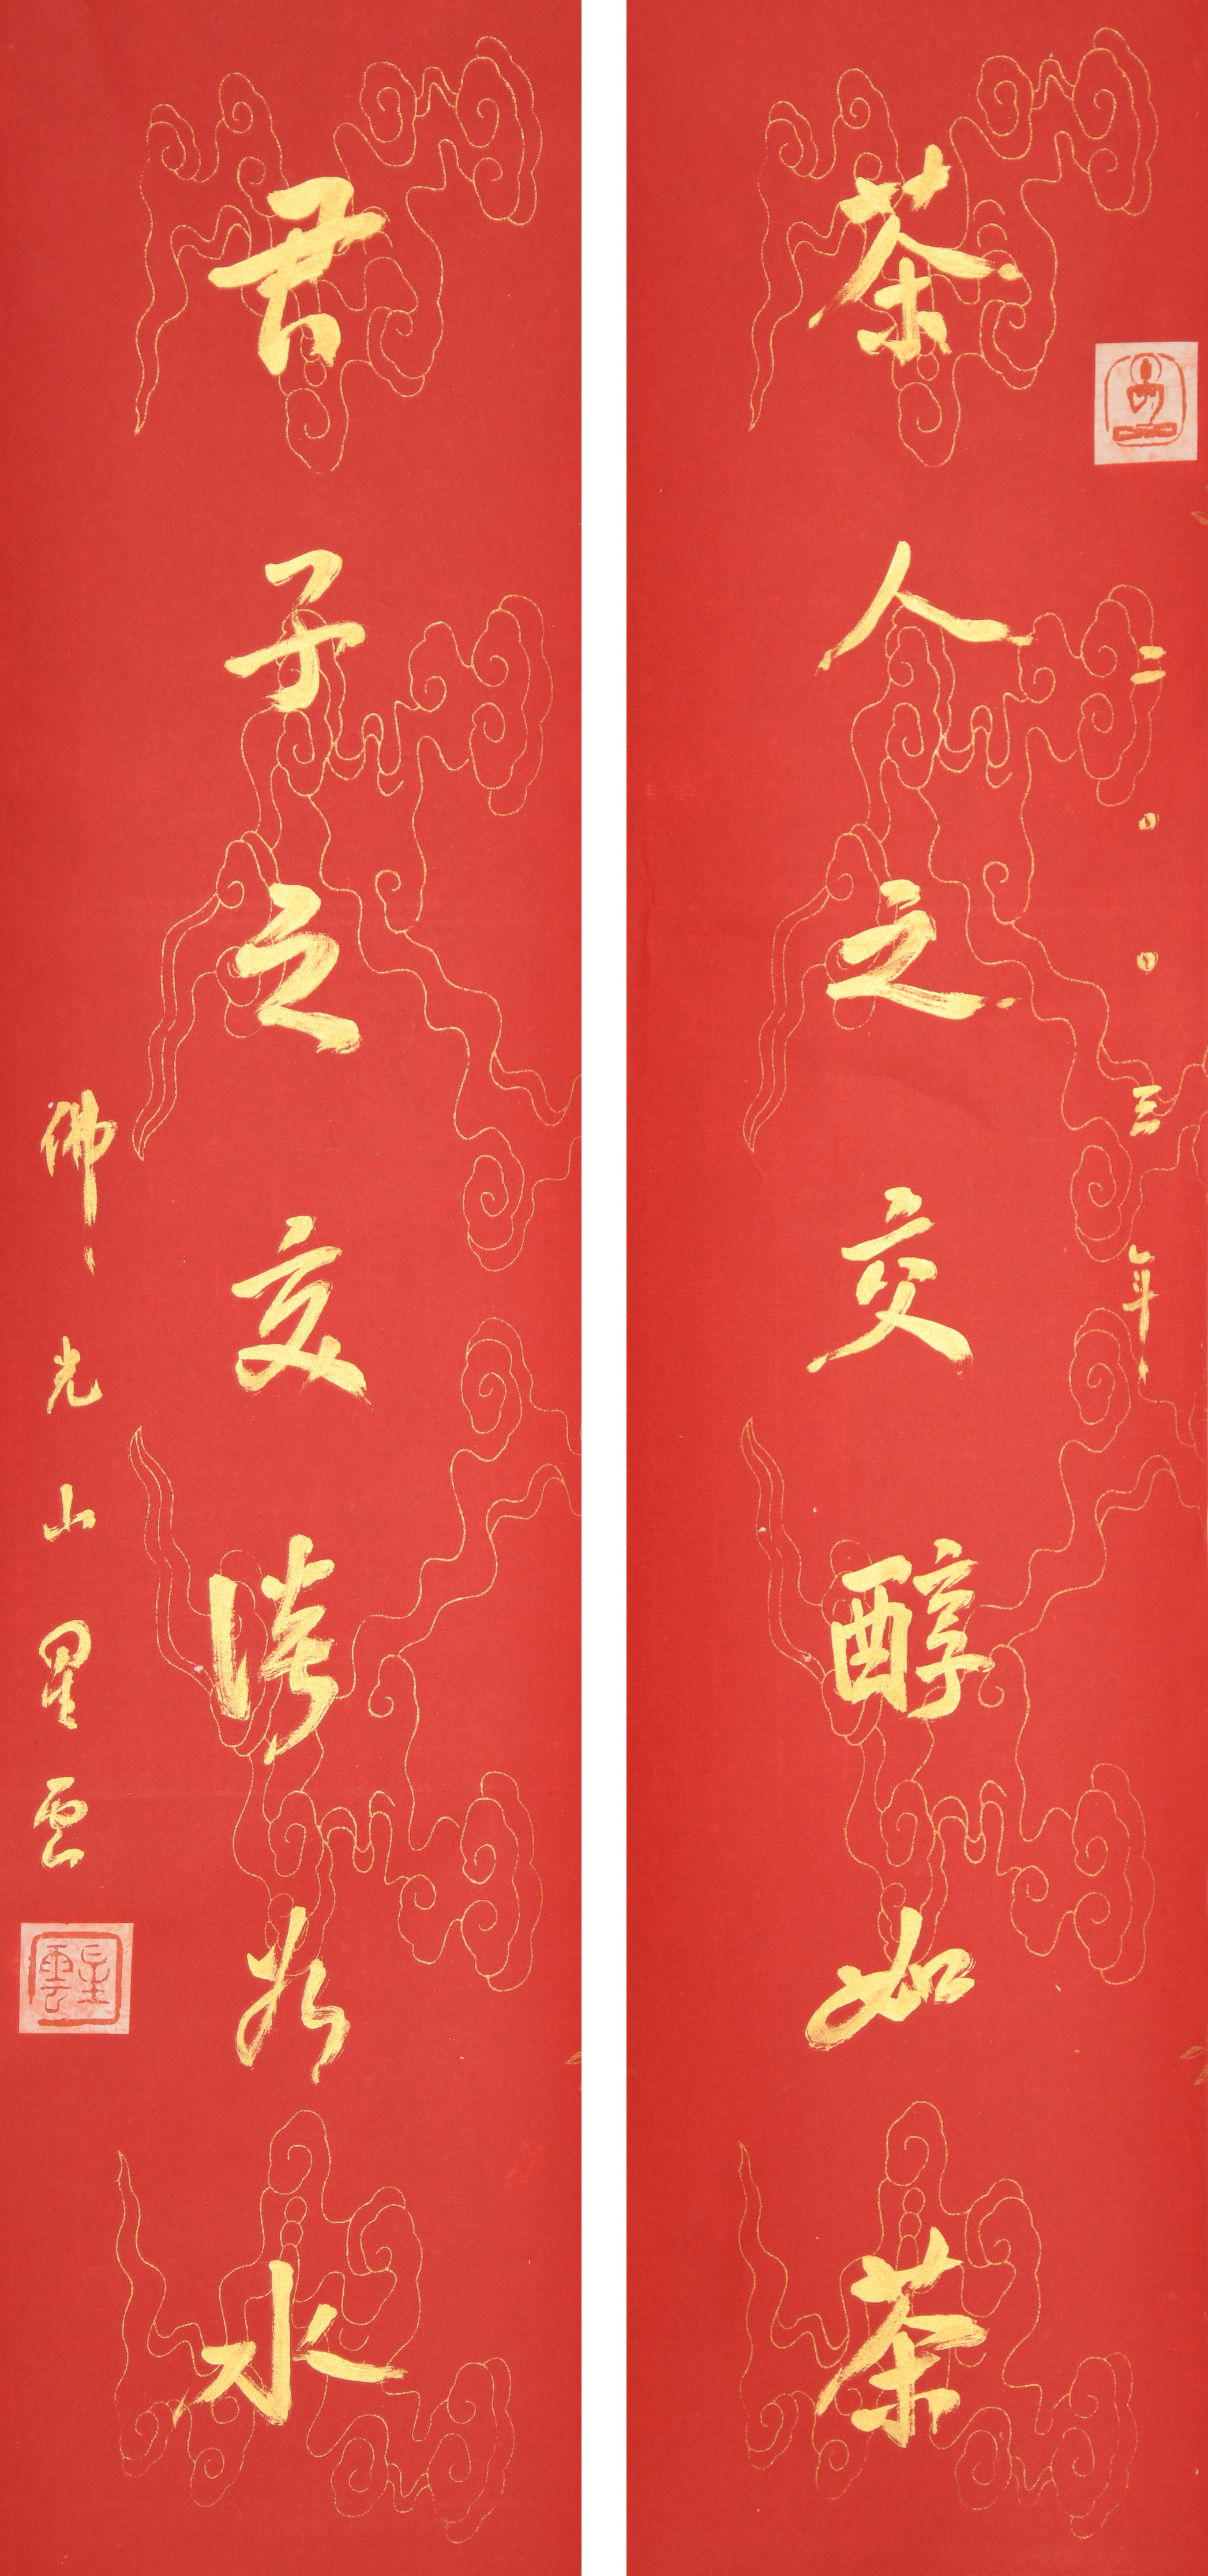 二〇〇三年
茶人之交醇如茶
君子之交淡如水
佛光山星雲
星雲